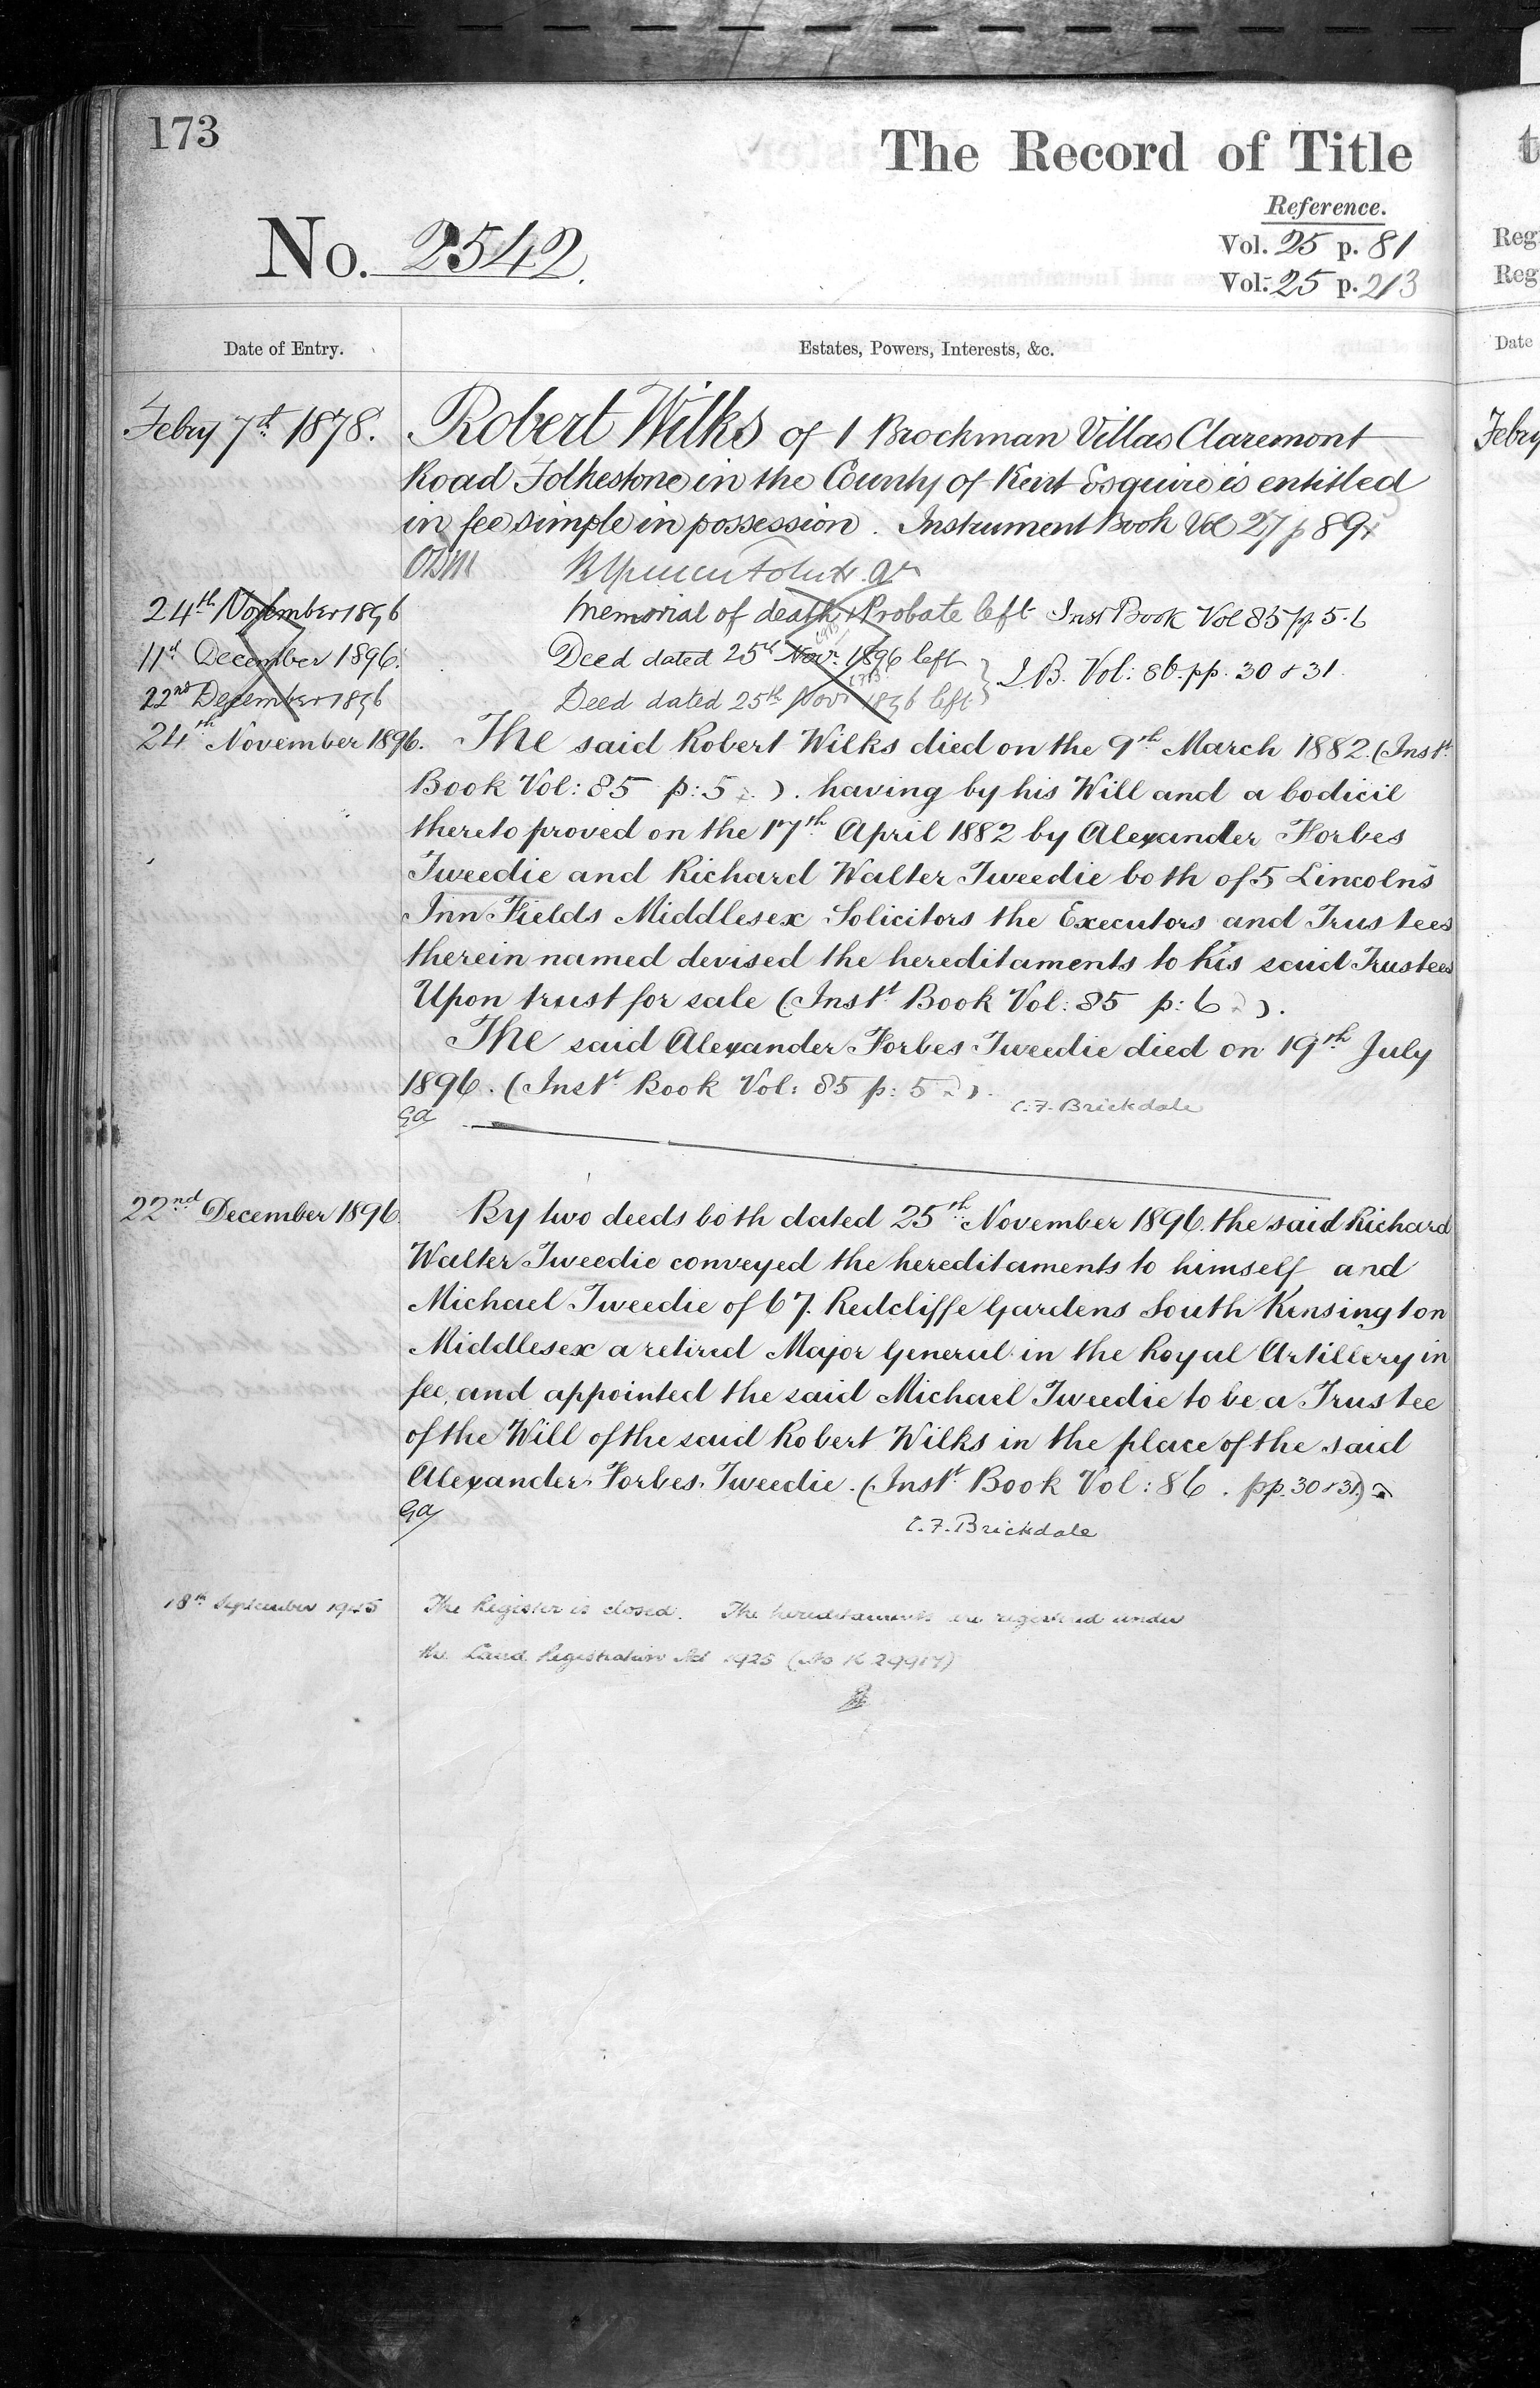 173
The Record of Title
Reference.
No. 2542.
Vol. 25 p. 81
Vol. 25 p. 213
Date of Entry.
Estates, Powers, Interests, &c.
Febry 7th 1878. Robert Wilks of 1 Brockman Villas Claremont
Road Folkestone in the County of Kent Esquire is entitled
in fee simple in possession. Instrument Book Vol 27 p 89
24th November 1896 Memorial of death & Probate left Inst Book Vol 85 pp. 5.6
11th December 1896. Deed dated 25th Novr. 1896 left } I.B. Vol: 86. pp. 30 & 31.
22nd December 1896 Deed dated 25th Novr 1896 left
24th November 1896. The said Robert Wilks died on the 9th March 1882. (Instt.
Book Vol: 85 p: 5 ). having by his Will and a bodicil
thereto proved on the 17th April 1882 by Alexander Forbes
Tweedie and Richard Walter Tweedie both of 5 Lincoln's
Inn Fields Middlesex Solicitors the Executors and Trustees
therein named devised the hereditaments to his said Trustees
Upon trust for sale (Instt. Book Vol: 85 p: 6 ).
The said Alexander Forbes Tweedie died on 19th July
1896. (Instt. Book Vol: 85 p: 5 ).
C.F. Brickdale
22nd December 1896. By two deeds both dated 25th November 1896. the said Richard
Walter Tweedie conveyed the hereditaments to himself and
Michael Tweedie of 67. Redcliffe Gardens South Kensington
Middlesex a retired Major General in the Royal Artillery in
fee, and appointed the said Michael Tweedie to be a Trustee
of the Will of the said Robert Wilks in the place of the said
Alexander Forbes Tweedie. (Instt. Book Vol: 86. pp. 30 & 31.)
C.F. Brickdale
18th September 1945 The Register is closed. The hereditaments are registered under
the Land Registration Act 1925 (No K 29917)
t
Reg
Reg
Date
Febry